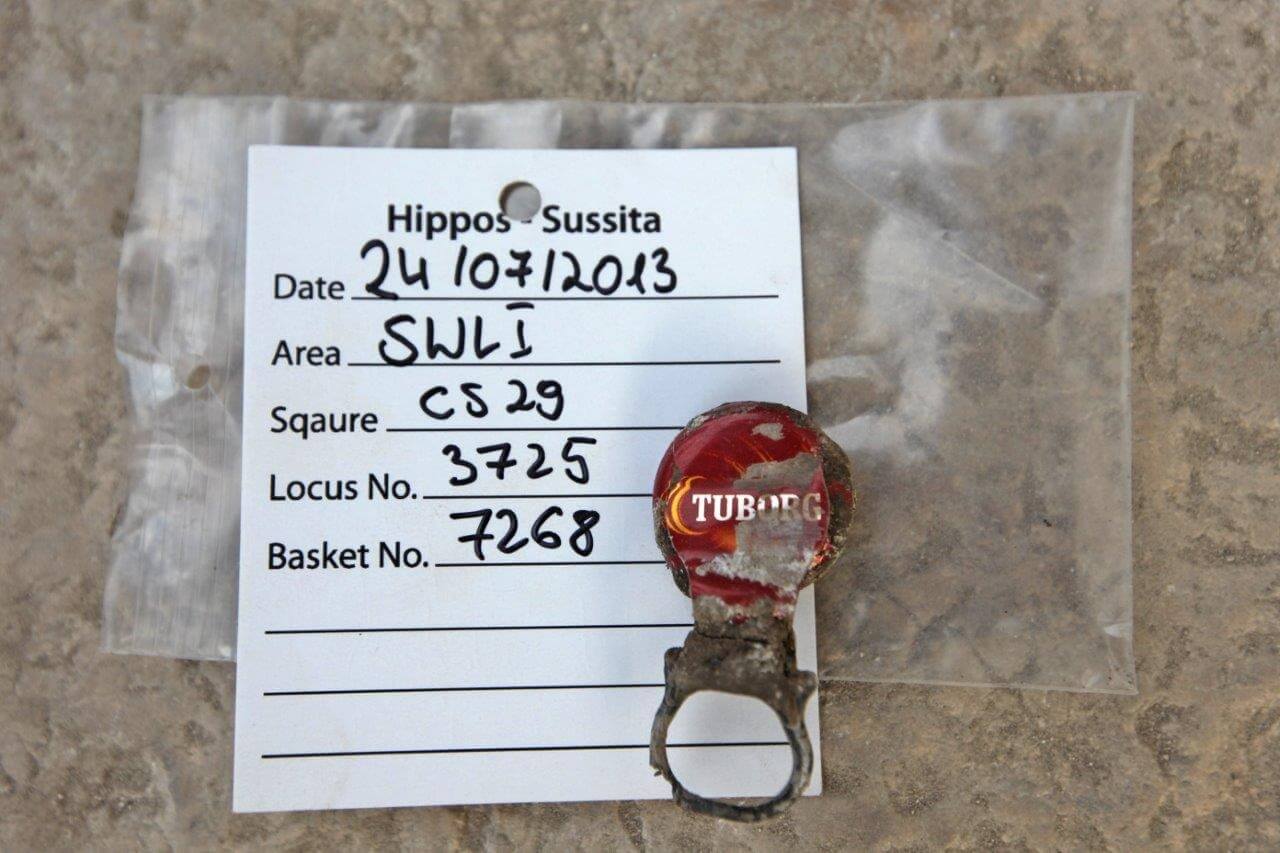 Hippos - Sussita
Date 24/07/2013
Area SWLI
Sqaure CS29
Locus No. 3725
Basket No. 7268
TUBORG